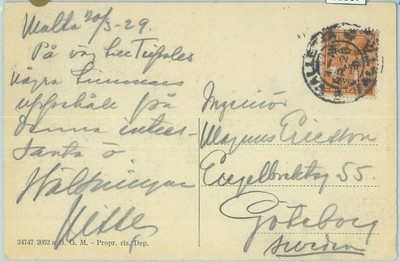 Malta 20/3-29.
På väg till Tripolis
några timmars
uppehåll på
denna intres-
santa ö
Hälsningar
24747 2052 G. G. M. - Propr. ris. Dep.
Ingeniör
Magnus Ericson
Engelbrektsg 55.
Göteborg
Sweden